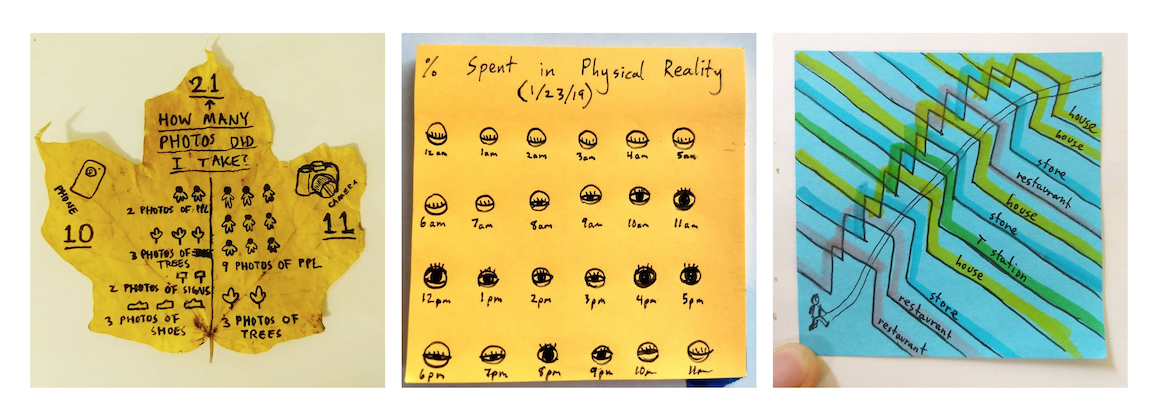 21
HOW MANY
PHOTOS DID
I TAKE?
PHONE
CAMERA
10
11
2 PHOTOS OF PPL
3 PHOTOS OF
TREES
9 PHOTOS OF PPL
2 PHOTOS OF SIGNS
3 PHOTOS OF
SHOES
3 PHOTOS OF
TREES
% Spent in Physical Reality
(1/23/19)
12am 1am 2am 3am 4am 5am
6am 7am 8am 9am 10am 11am
12pm 1pm 2pm 3pm 4pm 5pm
6pm 7pm 8pm 9pm 10pm 11pm
house
house
store
restaurant
house
store
T station
house
store
restaurant
restaurant